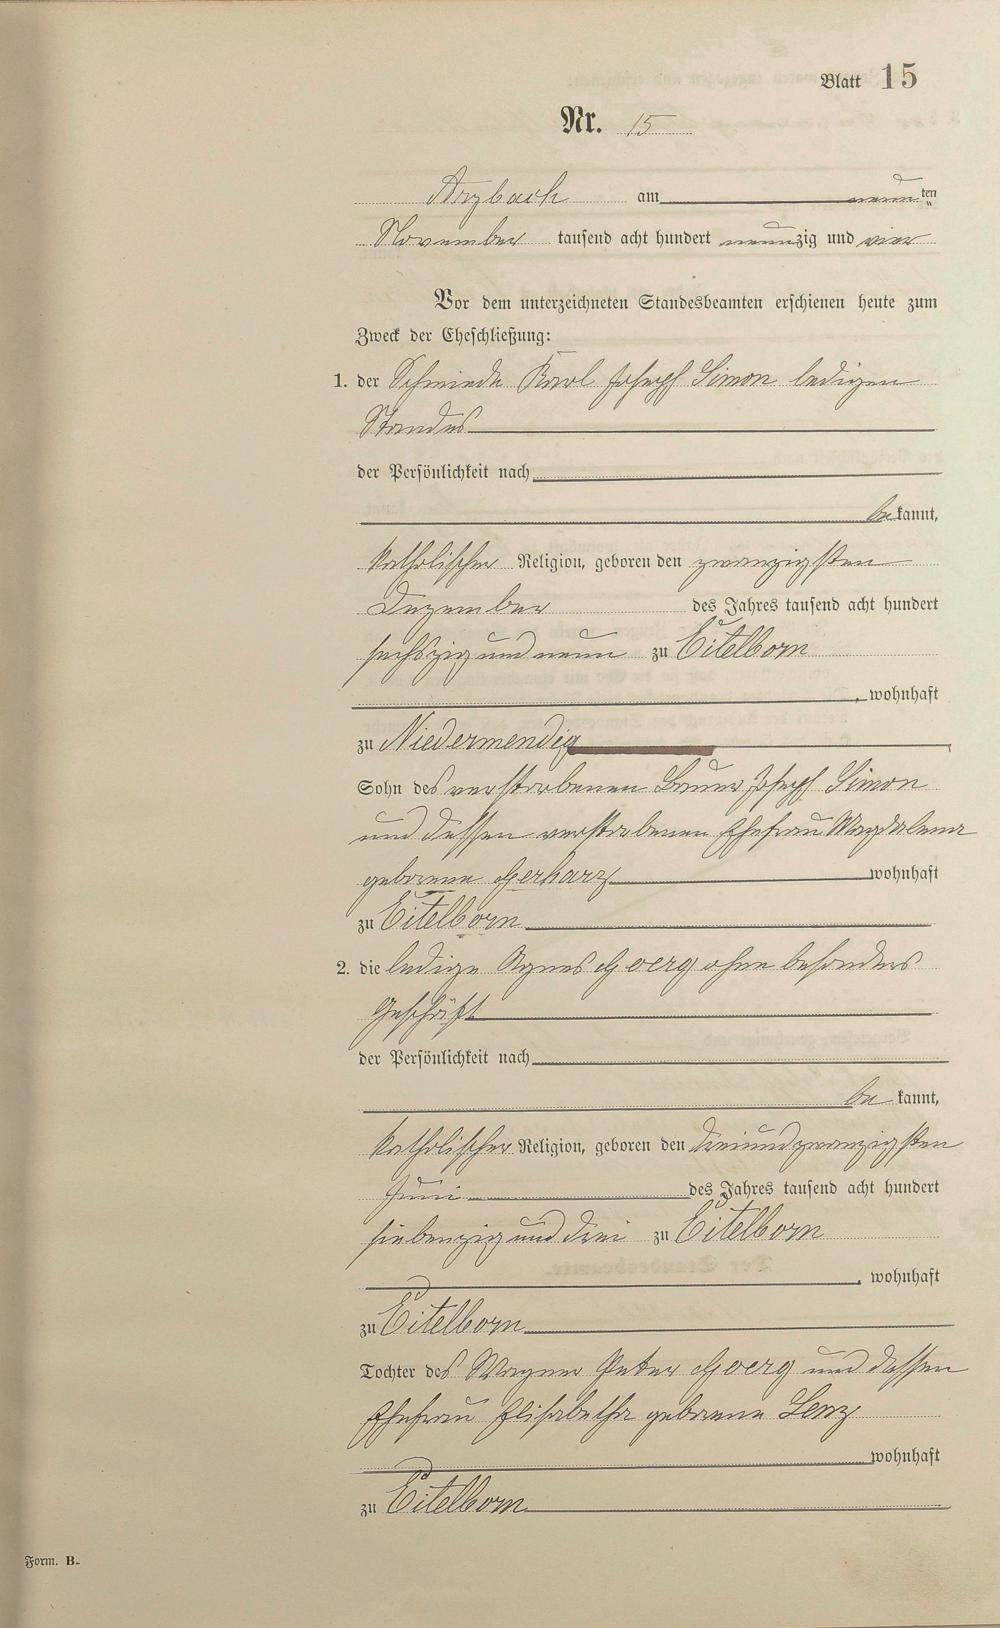 Blatt 15
Nr. 15
Arzbach am neunten
November tausend acht hundert neunzig und vier
Vor dem unterzeichneten Standesbeamten erschienen heute zum
Zweck der Eheschließung:
1. der Schmiede Karl Joseph Simon ledigen
Standes
der Persönlichkeit nach
bekannt,
katholischer Religion, geboren den zwanzigsten
Dezember des Jahres tausend acht hundert
sechszig und neun zu Eitelborn
, wohnhaft
zu Niedermendig
Sohn des verstorbenen Bauer Joseph Simon
und dessen verstorbenen Ehefrau Magdalena
geborene Gerharz wohnhaft
zu Eitelborn
2. die ledige Agnes Goerg ohne besonders
Geschäft
der Persönlichkeit nach
bekannt,
katholischer Religion, geboren den dreiundzwanzigsten
Juni des Jahres tausend acht hundert
siebenzig und drei zu Eitelborn
, wohnhaft
zu Eitelborn
Tochter des Wagner Peter Goerg und dessen
Ehefrau Elisabetha geborene Lenz
wohnhaft
zu Eitelborn
Form. B.